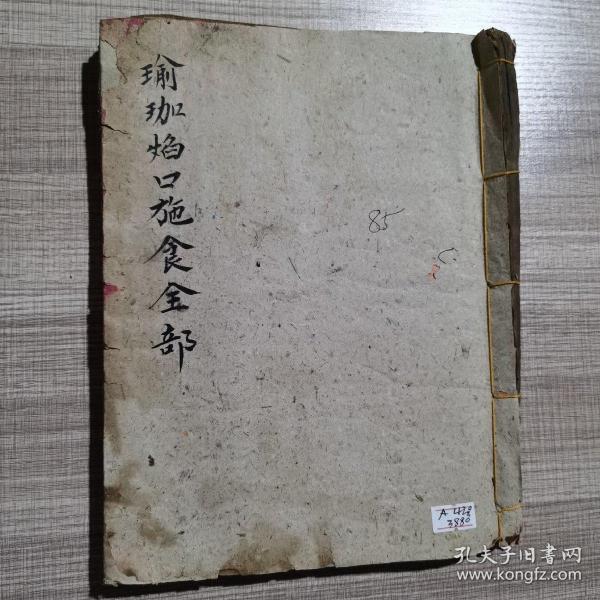 瑜珈焰口施食全部
85
A 430
3880
孔夫子旧书网
www.kongfz.com